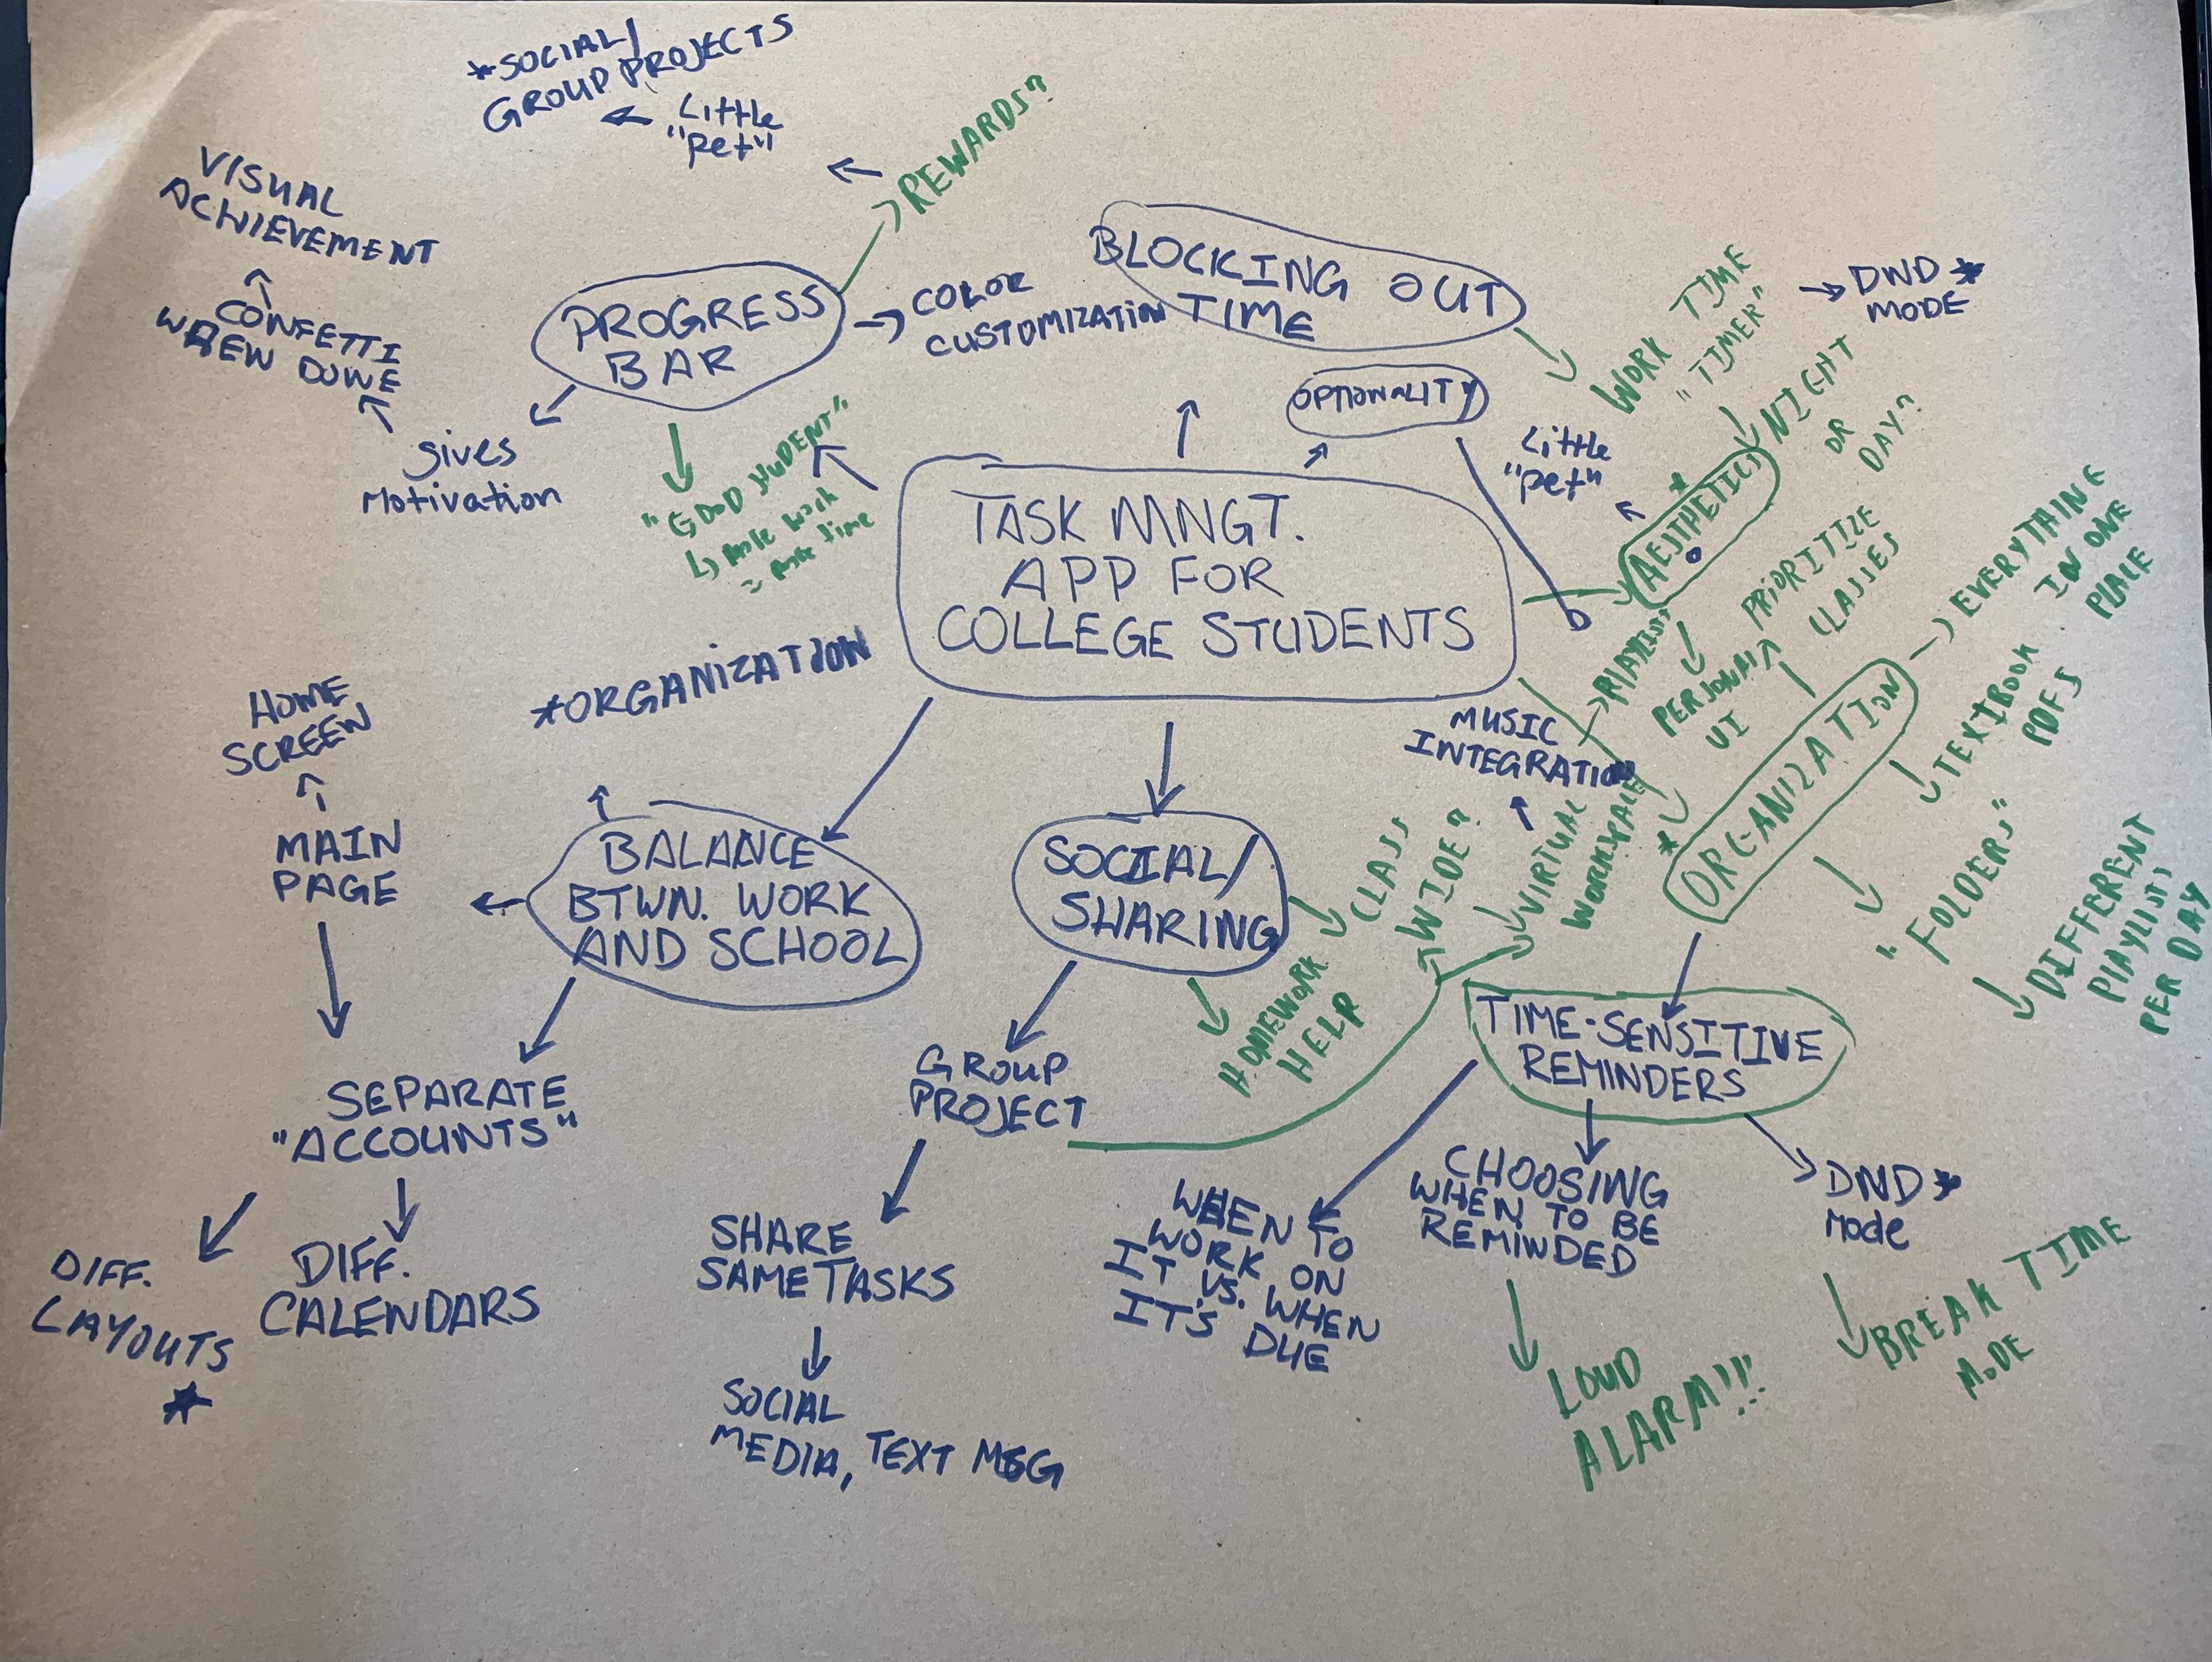 *SOCIAL/
GROUP PROJECTS
Little
"Pet"
REWARDS?
VISUAL
ACHIEVEMENT
CONFETTI
WHEN DONE
gives
Motivation
PROGRESS
BAR
COLOR
CUSTOMIZATION
"GOOD STUDENT"
more work
= more time
BLOCKING OUT
TIME
WORK TIME
"TIMER"
DND *
MODE
OPTIONALITY
Little
"Pet"
NIGHT
OR
DAY?
*
AESTHETICS
TASK MNGT.
APP FOR
COLLEGE STUDENTS
PLAYLISTS
PERSONAL
UI
PRIORITIZE
CLASSES
EVERYTHING
IN ONE
PLACE
MUSIC
INTEGRATION
*
ORGANIZATION
TEXTBOOK
PDFS
"FOLDERS"
DIFFERENT
PLAYLISTS
PER DAY
*ORGANIZATION
HOME
SCREEN
MAIN
PAGE
BALANCE
BTWN. WORK
AND SCHOOL
SOCIAL/
SHARING
CLASS
WIDE?
VIRTUAL
WORKSPACE
HOMEWORK
HELP
SEPARATE
"ACCOUNTS"
DIFF.
LAYOUTS
*
DIFF.
CALENDARS
GROUP
PROJECT
SHARE
SAME TASKS
SOCIAL
MEDIA, TEXT MSG
TIME-SENSITIVE
REMINDERS
WHEN TO
WORK ON
IT VS. WHEN
IT'S DUE
CHOOSING
WHEN TO BE
REMINDED
LOUD
ALARM!!!
DND *
Mode
BREAK TIME
MODE